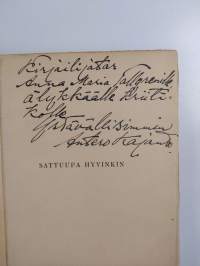 Kirjailijatar
Anna Maria Tallgrenille
älykkäälle kriiti-
kolle
Ystävällisimmin
Antero Kajanto
SATTUUPA HYVINKIN